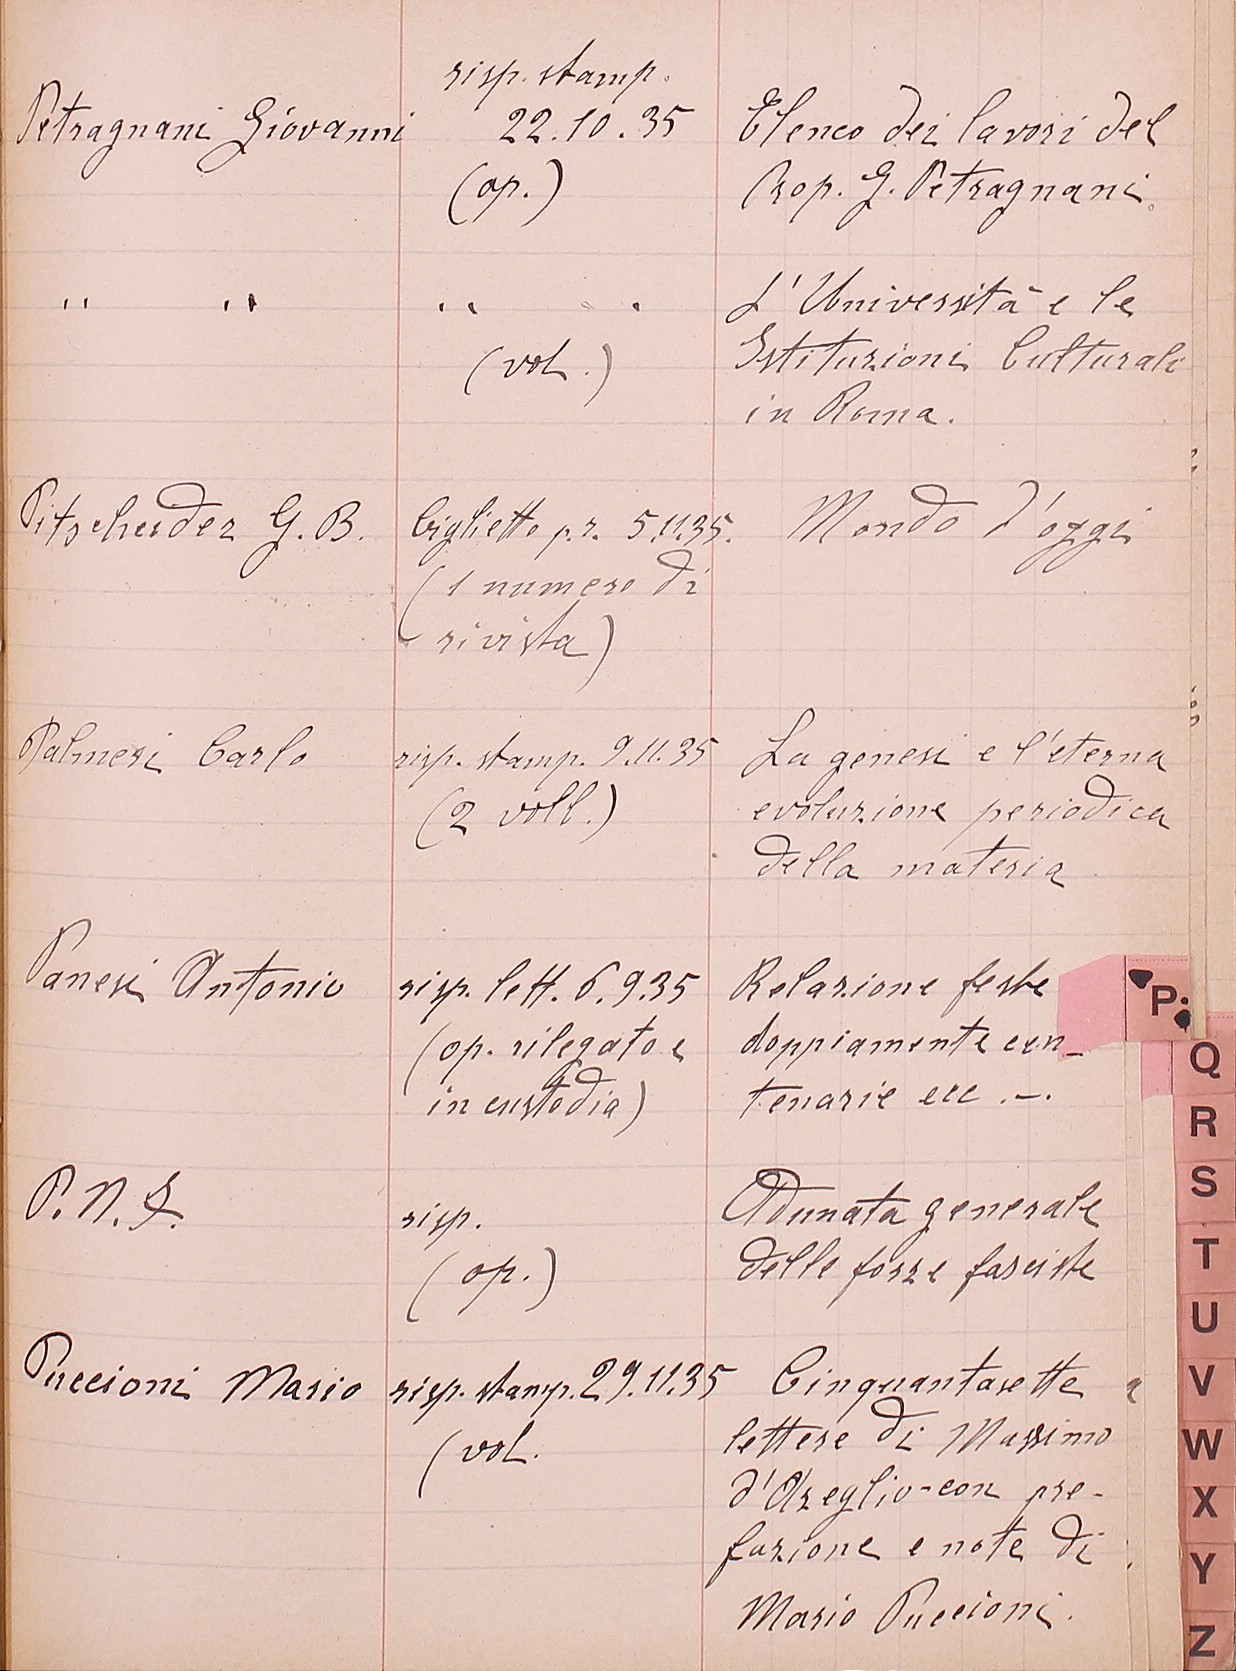 risp. stamp.
Petragnani Giovanni 22.10.35 Elenco dei lavori del
(op.) Prop. G. Petragnani.
" " " " L'Università e le
(vol.) Istituzioni Culturali
in Roma.
Pitscheider G.B. biglietto p.r. 5.11.35. Mondo d'oggi
(1 numero di
rivista)
Palmeri Carlo risp. stamp. 9.11.35 La genesi e l'eterna
(2 voll.) evoluzione periodica
della materia
Panesi Antonio risp. lett. 6.9.35 Relazione feste
(op. rilegato e doppiamente cen-
in custodia) tenarie ecc.-.
P.N.F. risp. Adunata generale
(op.) delle forze fasciste
Puccioni Mario risp. stamp. 29.11.35 Cinquantasette
(vol. lettere di Massimo
d'Azeglio-con pre-
fazione e note di
Mario Puccioni.
P
Q
R
S
T
U
V
W
X
Y
Z